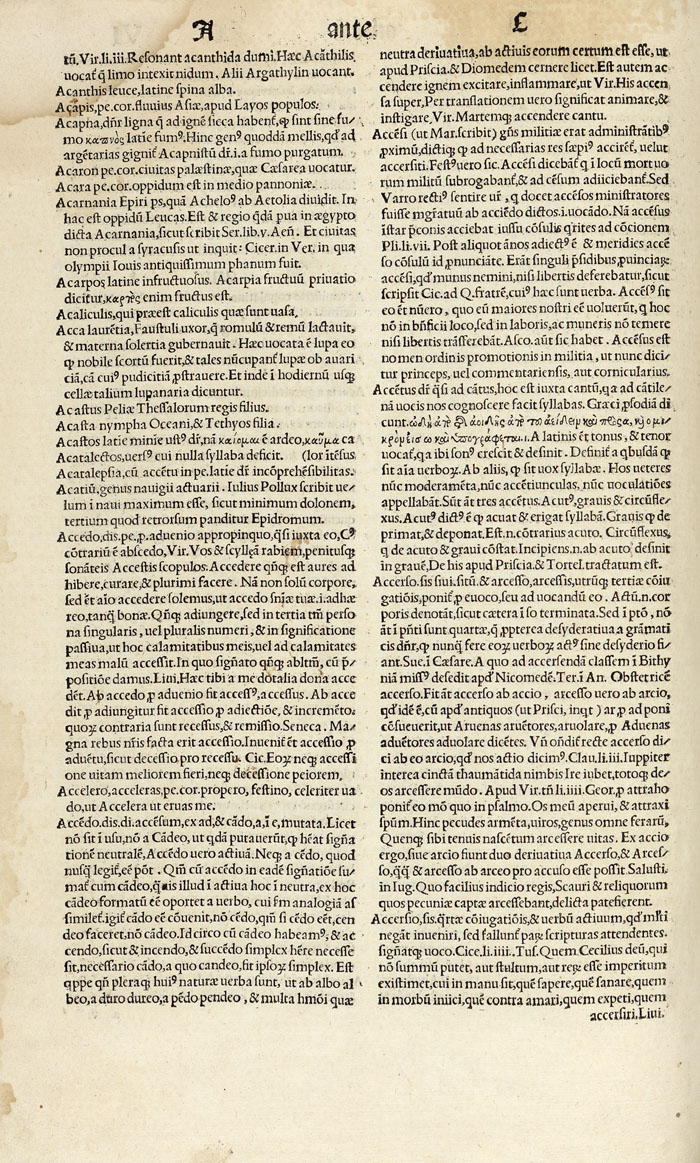 A ante C
tū. Vir. li. iii. Resonant acanthida dumi. Hæc Acāthilis
uocat̄ q̄ limo intexit nidum. Alii Argathylin uocant.
Acanthis leuce, latine spina alba.
Acapis, pe. cor. fluuius Asiæ, apud Layos populos.
Acapna, dn̄r ligna q̄ ad ignē sicca habent̄, ꝙ sint sine fu/
mo καπνὸς latie fumꝰ. Hinc genꝰ quoddā mellis, qd̓ ad
argētarias gignit̄ Acapnistū dr̄. i. a fumo purgatum.
Acaron pe. cor. ciuitas palæstinæ, quæ Cæsarea uocatur.
Acara pe. cor. oppidum est in medio pannoniæ.
Acarnania Epiri ps, quā Achelous ab Aetolia diuidit. In
hac est oppidū Leucas. Est & regio q̄dā pua in ægypto
dicta Acarnania, sicut scribit Ser. lib. v. Aen̄. Et ciuitas
non procul a syracusis ut inquit: Cicer. in Ver. in qua
olympii Iouis antiquissimum phanum fuit.
Acarpos latine infructuosus. Acarpia fructuū priuatio
dicitur, καρπὸς enim fructus est.
Acaliculis, qui præest caliculis quæ sunt uasa.
Acca laurētia, Faustuli uxor, q̄ romulū & remū lactauit,
& materna solertia gubernauit. Hæc uocata ē lupa eo
ꝙ nobile scortū fuerit, & tales nūcupant̄ lupæ ob auari
ciā, cā cuiꝰ pudicitiā ꝓstrauere. Et inde ī hodiernū usqꝫ
cellæ talium lupanaria dicuntur.
Acastus Peliæ Thessalorum regis filius.
Acasta nympha Oceani, & Tethyos filia.
Acastos latie minie ustꝰ dr̄, nā καίομαι ē ardeo, καῦμα ca
Acatalectos, uersꝰ cui nulla syllaba deficit. (lor itēsus.
Acatalepsia, cū accētu in pe. latie dr̄ incōprehēsibilitas.
Acatiū. genus nauigii actuarii. Iulius Pollux scribit ue/
lum ī naui maximum esse, sicut minimum dolonem,
tertium quod retrorsum panditur Epidromum.
Accedo, dis. pe. p. aduenio appropinquo, q̄si iuxta eo, Cꝰ
cōtrariū ē abscedo, Vir. Vos & scyllęā rabiem, penitusqꝫ
sonāteis Accestis scopulos. Accedere qn̄qꝫ est aures ad
hibere, curare, & plurimi facere. Nā non solū corpore,
sed ēt aīo accedere solemus, ut accedo sn̄iæ tuæ. i. adhæ
reo, tanq̄ bonæ. Qn̄qꝫ adiungere, sed in tertia tm̄ perso
na singularis, uel pluralis numeri, & in significatione
passiua, ut hoc calamitatibus meis, uel ad calamitates
meas malū accessit. In quo signat̄o qn̄qꝫ abltm̄, cū p̄/
positiōe damus. Liui. Hæc tibi a me dotalia dona acce
dēt. Ap̄ accedo ꝓ aduenio fit accessꝰ, accessus. Ab acce
dit ꝓ adiungitur fit accessio ꝓ adiectiōe, & incremēto:
quoꝝ contraria sunt recessus, & remissio. Seneca. Ma/
gna rebus nr̄is facta erit accessio. Inuenit̄ ēt accessio ꝓ
aduētu, sicut decessio pro recessu. Cic. Eoꝝ neqꝫ accessi
one uitam meliorem fieri, neqꝫ decessione peiorem.
Accelero, acceleras, pe. cor. propero, festino, celeriter ua
do, ut Accelera ut eruas me.
Accēdo. dis. di. accēsum, ex ad, & cādo, a, ī e, mutata. Licet
nō sit ī usu, nō a Cādeo, ut qdā putauerūt, ꝙ hēat signa
tionē neutralē, Accēdo uero actiuā. Neqꝫ a cēdo, quod
nusq̄ legit̄, eē pōt. Qm̄ cū accēdo in eadē signatiōe su/
mat̄ cum cādeo, q̄uis illud ī actiua hoc ī neutra, ex hoc
cādeo formatū eē oportet a uerbo, cui fm̄ analogiā as
similet̄. igit̄ cādo eē cōuenit, nō cēdo, qm̄ si cēdo eēt, cen
deo faceret, nō cādeo. Id circo cū cādeo habeamꝰ, & ac
cendo, sicut & incendo, & succēdo simplex hēre necesse
sit, necessario cādo, a quo candeo, fit ipsoꝝ simplex. Est
qppe qn̄ pleraqꝫ huiꝰ naturæ uerba sunt, ut ab albo al
beo, a duro dureo, a pēdo pendeo, & multa hmōi quæ
neutra deriuatiua, ab actiuis eorum certum est esse, ut
apud Priscia. & Diomedem cernere licet. Est autem ac
cendere ignem excitare, inflammare, ut Vir. His accen
sa super, Per translationem uero significat animare, &
instigare. Vir. Martemqꝫ accendere cantu.
Accēsi (ut Mar. scribit) gn̄s militiæ erat administrātibꝰ
ꝓximū, dictiqꝫ ꝙ ad necessarias res sæpiꝰ accirēt̄, uelut
accersiti. Festꝰ uero sic. Accēsi dicebāt̄ q ī locū mortuo
rum militū subrogabant̄, & ad cēsum adiiciebant̄. Sed
Varro rectiꝰ sentire ur̄, q docet accēsos ministratores
fuisse mgr̄atuū ab acciēdo dictos. i. uocādo. Nā accēsus
īstar p̄conis acciebat iussu cōsulis q̄rites ad cōcionem
Pli. li. vii. Post aliquot ānos adiectꝰ ē & meridies accē
so cōsulū id ꝓnunciāte. Erāt singuli p̄sidibus, ꝓuinciaꝝ
accēsi, qd̓ munus nemini, nisi libertis deferebatur, sicut
scripsit Cic. ad Q. fratrē, cuiꝰ hæc sunt uerba. Accēsꝰ sit
eo ēt nūero, quo eū maiores nostri eē uoluerūt, q hoc
nō in bn̄ficii loco, sed in laboris, ac muneris nō temere
nisi libertis trāsferebāt. Asco. aūt sic habet. Accēsus est
nomen ordinis promotionis in militia, ut nunc dici/
tur princeps, uel commentariensis, aut cornicularius.
Accētus dr̄ q̄si ad cātus, hoc est iuxta cantū, qa ad cātile/
nā uocis nos cognoscere facit syllabas. Græci ꝓsodiā di
cunt.
a latinis ēt tonus, & tenor
uocat̄, qa ibi sonꝰ crescit & definit. Definit̄ a qbusdā ꝙ
sit aīa uerboꝝ. Ab aliis, ꝙ sit uox syllabæ. Hos ueteres
nūc moderamēta, nūc accētiunculas, nūc uoculatiōes
appellabāt. Sūt āt tres accētus. Acutꝰ, grauis & circūfle/
xus. Acutꝰ dictꝰ ē ꝙ acuat & erigat syllabā. Grauis ꝙ de
primat, & deponat. Est. n. cōtrarius acuto. Circūflexus,
q de acuto & graui cōstat. Incipiens. n. ab acuto definit
in grauē, De his apud Priscia. & Tortel. tractatum est.
Accerso. sis siui. sitū. & arcesso, arcessis, utrūqꝫ tertiæ cōiu
gatiōis, ponit̄ ꝓ euoco, seu ad uocandū eo. Actū. n. cor
poris denotāt, sicut cætera ī so terminata. Sed ī ptō, nō
āt ī pn̄ti sunt quartæ, q̄ ꝓpterea desyderatiua a grāmati
cis dn̄r, ꝙ nunq̄ fere eoꝝ uerboꝝ actꝰ sine desyderio fi/
ant. Sue. ī Cæsare. A quo ad accersendā classem ī Bithy
niā missꝰ desedit apd̓ Nicomedē. Ter. ī An. Obstetricē
accerso. Fit āt accerso ab accio, arcesso uero ab arcio,
qd̓ idē ē, cū apd̓ antiquos (ut Prisci. inqt) ar ꝓ ad poni
cōsueuerit, ut Aruenas aruētores, aruolare, ꝓ Aduenas
aduētores aduolare dicētes. Vn̄ ondit̄ recte accerso di/
ci ab eo arcio, qd̓ nos actio dicimꝰ. Clau. li. iii. Iuppiter
interea cinctā thaumātida nimbis Ire iubet, totoqꝫ de/
os arcessere mūdo. Apud Vir. tn̄ li. iiii. Geor. ꝓ attraho
ponit̄ eo mō quo in psalmo. Os meū aperui, & attraxi
spūm. Hinc pecudes armēta, uiros, genus omne ferarū,
Quenqꝫ sibi tenuis nascētum arcessere uitas. Ex accio
ergo, siue arcio fiunt duo deriuatiua Accerso, & Arces/
so, q̄q̄ & arcesso ab arceo pro accuso esse possit. Salusti.
in Iug. Quo facilius indicio regis, Scauri & reliquorum
quos pecuniæ captæ arcessebant, delicta patefierent.
Accersio, sis. q̄rtæ cōiugatiōis, & uerbū actiuum, qd̓ mlti
negāt inueniri, sed fallunt̄ paꝝ scripturas attendentes.
signat̄qꝫ uoco. Cice. li. iiii. Tus. Quem Cecilius deū, qui
nō summū putet, aut stultum, aut reꝝ esse imperitum
existimet, cui in manu sit, quē sapere, quē sanare, quem
in morbū iniici, quē contra amari, quem expeti, quem
accersiri, Liui.